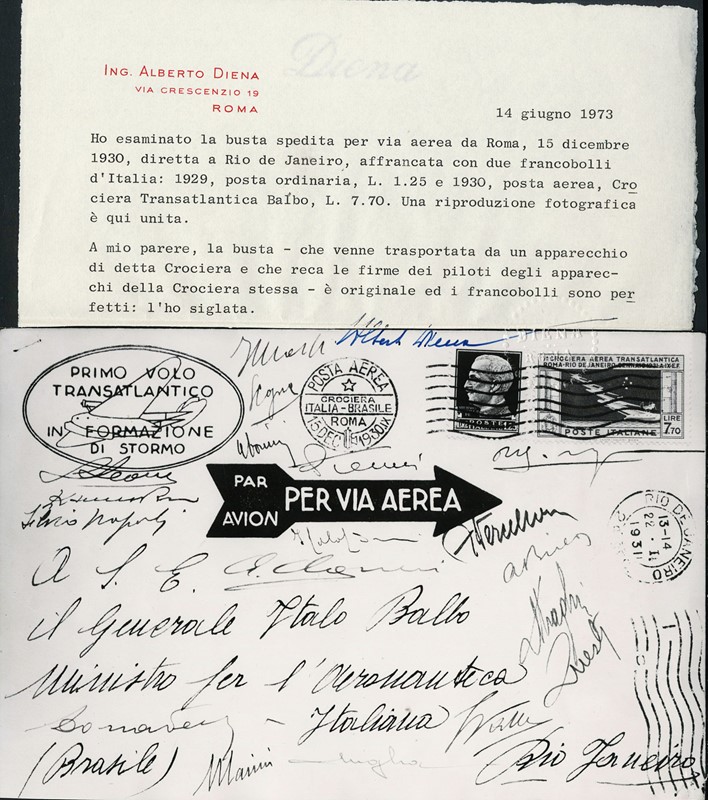 Diena
ING. ALBERTO DIENA
VIA CRESCENZIO 19
ROMA
14 giugno 1973
Ho esaminato la busta spedita per via aerea da Roma, 15 dicembre
1930, diretta a Rio de Janeiro, affrancata con due francobolli
d'Italia: 1929, posta ordinaria, L. 1.25 e 1930, posta aerea, Cro
ciera Transatlantica Balbo, L. 7.70. Una riproduzione fotografica
è qui unita.
A mio parere, la busta - che venne trasportata da un apparecchio
di detta Crociera e che reca le firme dei piloti degli apparec-
chi della Crociera stessa - è originale ed i francobolli sono per
fetti: l'ho siglata.
Alberto Diena
PRIMO VOLO
TRANSATLANTICO
IN FORMAZIONE
DI STORMO
POSTA AEREA
CROCIERA
ITALIA-BRASILE
ROMA
15 DEC 1930 IX
POSTE
CROCIERA AEREA TRANSATLANTICA
ROMA-RIO DE JANEIRO
LIRE
7.70
POSTE ITALIANE
Silvio Napoli
PAR
AVION
PER VIA AEREA
RIO DE JANEIRO
13-14
22 . I.
1931
A S. E.
il Generale Italo Balbo
Ministro per l'Aeronautica
Italiana
(Brasile)
Rio Janeiro